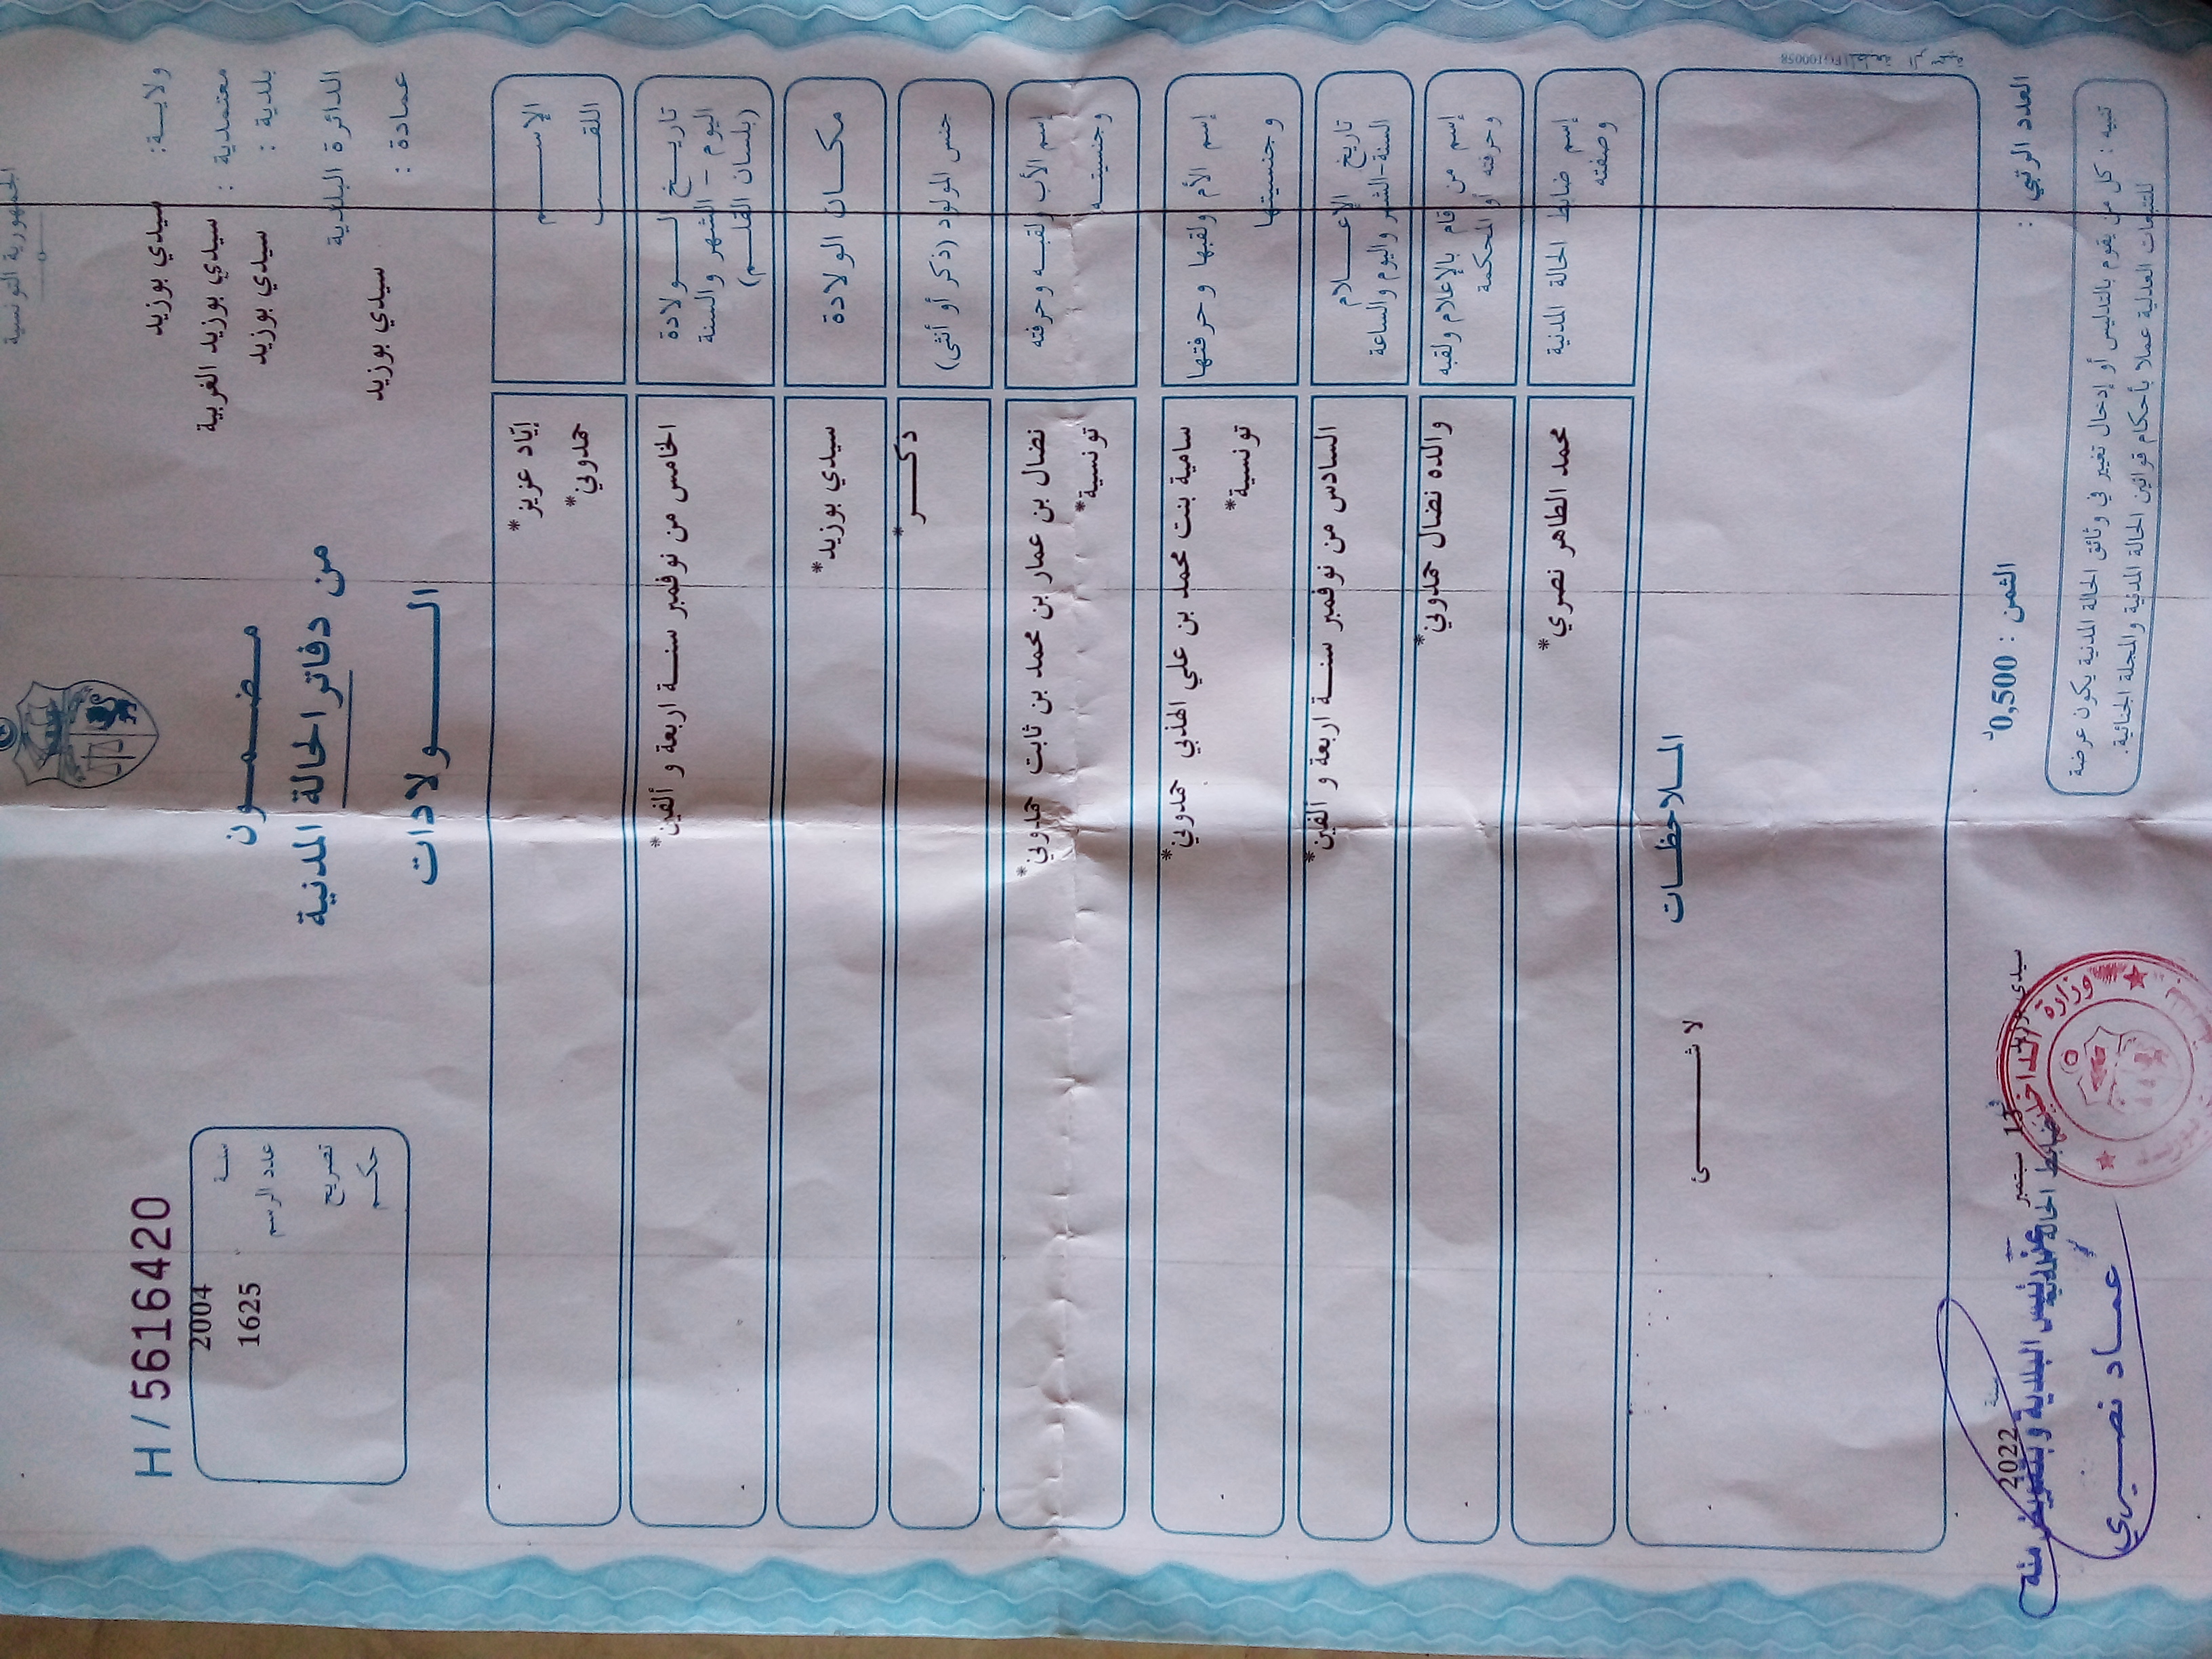 الجمهورية التونسية
H / 5616420
ولايـــة: سيدي بوزيد
معتمدية : سيدي بوزيد الغربية
بلدية : سيدي بوزيد
الدائرة البلدية
عمادة : سيدي بوزيد
مـضـمـون
من دفاتر الحالة المدنية
الـــولادات
سنة 2004
عدد الرسم 1625
تصريح
حكم
الإســـم إيّاد عزيز*
اللقـــب حمدوني*
تاريـــخ الـــولادة
اليوم – الشهر والسنة
(بلسان القلـــم)
الخامس من نوفمبر سنــة اربعة و ألفين*
مكـــان الولادة سيدي بوزيد*
جنس المولود (ذكر أو أنثى) ذكـــر*
إسم الأب ولقبـــه وحرفته نضال بن عمار بن محمد بن ثابت حمدوني*
وجنسيتـــه تونسية*
إسم الأم ولقبها وحرفتها سامية بنت محمد بن علي الهذبي حمدوني*
وجنسيتها تونسية*
تاريخ الإعـــلام
السنة-الشهر واليوم والساعة
السادس من نوفمبر سنــة اربعة و ألفين*
إسم من قام بالإعلام ولقبه
وحرفته أو المحكمة
والده نضال حمدوني*
إسم ضابط الحالة المدنية
وصفته
محمد الطاهر نصري*
المـلاحظـــات
لا شـــــئ
العدد الرتبي :
الثمن : 0,500د
سيدي في 13 سبتمبر سنة 2022
ضابط الحالة المدنية
عن رئيس البلدية وبتفويض منه
عمـــاد نصـــيري
وزارة الداخلية
تنبيه : كل من يقوم بالتدليس أو إدخال تغيير في وثائق الحالة المدنية يكون عرضة
للتتبعات العدلية عملا بأحكام قوانين الحالة المدنية والمجلة الجنائية.